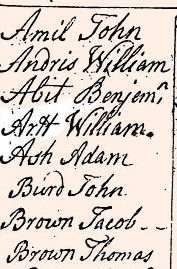 Amil John
Andris William
Abit Benjemn
Artt William.
Ash Adam
Burd John
Brown Jacob - -
Brown Thomas